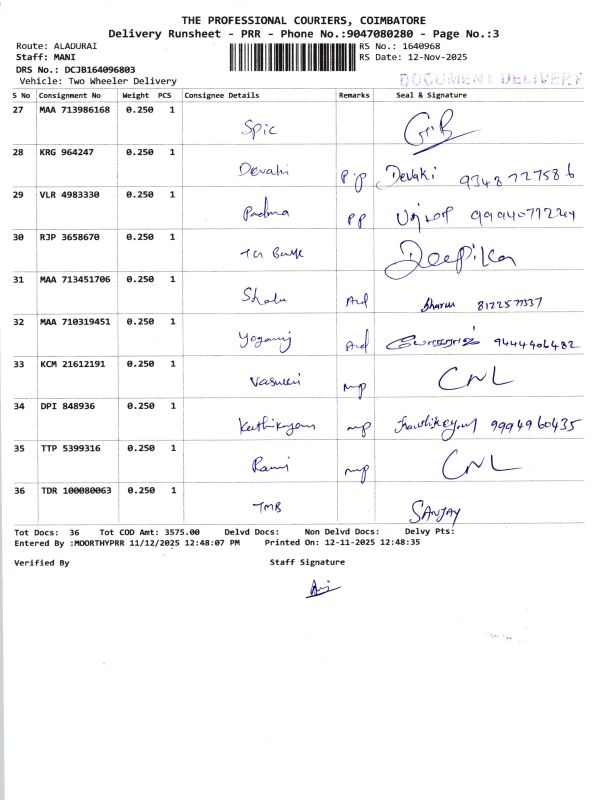 THE PROFESSIONAL COURIERS, COIMBATORE
Delivery Runsheet - PRR - Phone No.:9047080280 - Page No.:3
Route: ALADURAI RS No.: 1640968
Staff: MANI RS Date: 12-Nov-2025
DRS No.: DCJB164096803
Vehicle: Two Wheeler Delivery DOCUMENT DELIVERY
S No Consignment No Weight PCS Consignee Details Remarks Seal & Signature
27 MAA 713986168 0.250 1 Spic
28 KRG 964247 0.250 1 Devaki Devaki
29 VLR 4983330 0.250 1 Padma PP
30 RJP 3658670 0.250 1 Deepika
31 MAA 713451706 0.250 1
32 MAA 710319451 0.250 1 Yogaraj 9444406482
33 KCM 21612191 0.250 1 CNL
34 DPI 848936 0.250 1 9994960435
35 TTP 5399316 0.250 1 CNL
36 TDR 100080063 0.250 1 TMB SANJAY
Tot Docs: 36 Tot COD Amt: 3575.00 Delvd Docs: Non Delvd Docs: Delvy Pts:
Entered By :MOORTHYPRR 11/12/2025 12:48:07 PM Printed On: 12-11-2025 12:48:35
Verified By Staff Signature